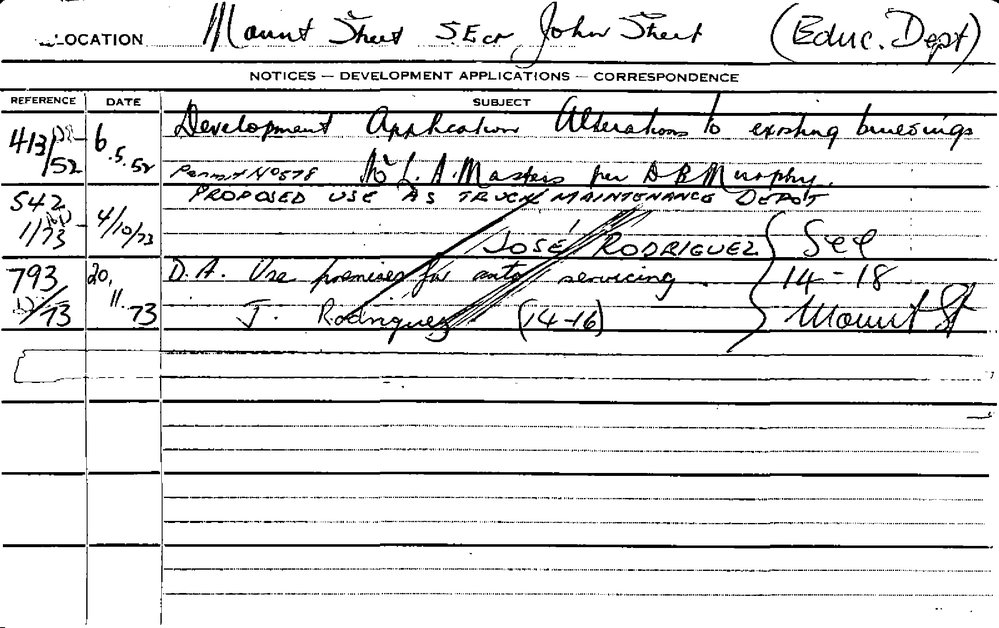 LOCATION Mount Street S.E cr John Street (Educ. Dept)
NOTICES — DEVELOPMENT APPLICATIONS — CORRESPONDENCE
REFERENCE DATE SUBJECT
413/52 6.5.52 Development Application Alterations to existing buildings
Permit No 578 Mr L. A. Masters per D B Murphy.
542 1/73 4/10/73 PROPOSED USE AS TRUCK MAINTENANCE DEPOT
JOSÉ RODRIGUEZ See
793 /73 20.11.73 D.A. Use premises for auto servicing. 14-18
J. Rodriguez (14-16) Mount St